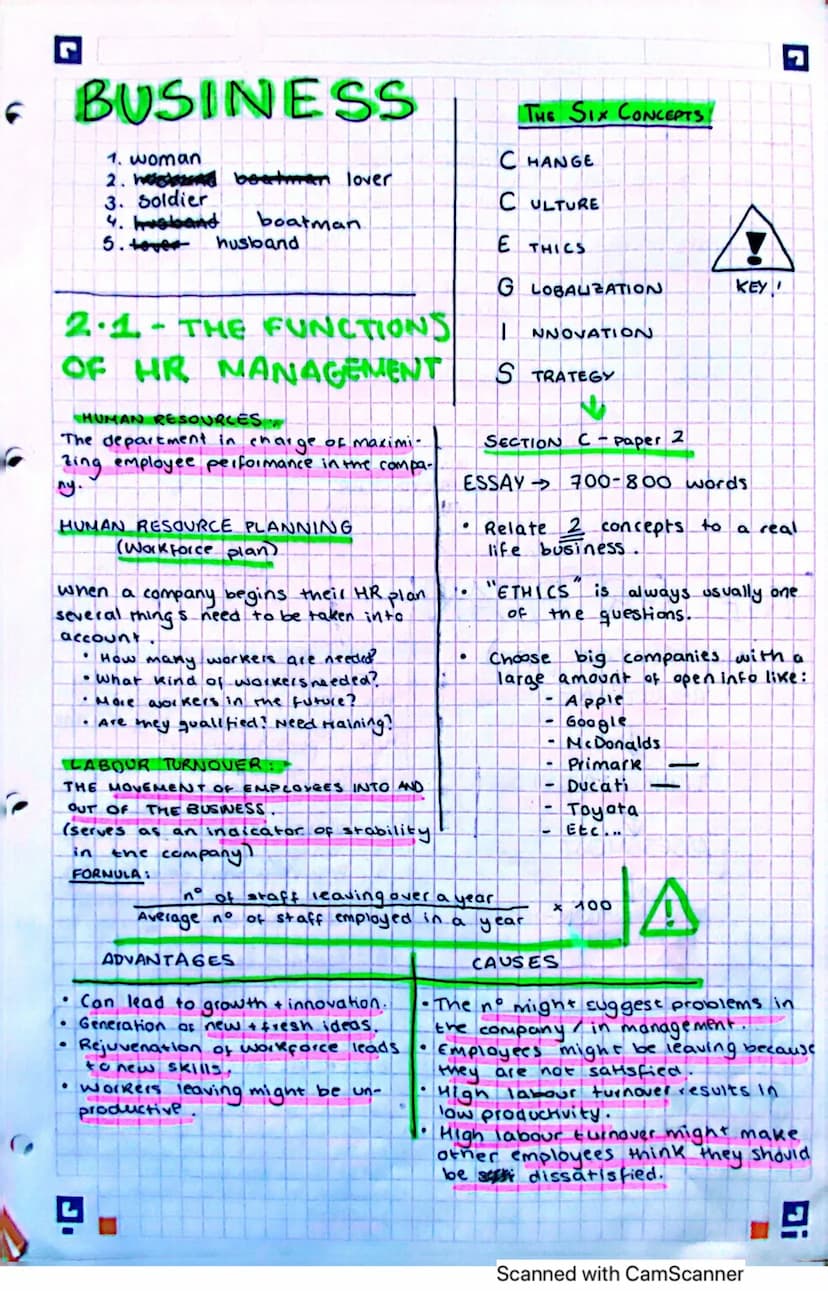 BUSINESS
1. woman
2. husband boatman lover
3. soldier
4. husband boatman
5. lover husband
THE SIX CONCEPTS!
CHANGE
CULTURE
ETHICS
GLOBALIZATION
INNOVATION
STRATEGY
KEY!
SECTION C - paper 2
ESSAY → 700-800 words
• Relate 2 concepts to a real
life business.
• "ETHICS" is always usually one
of the questions.
• Choose big companies with a
large amount of open info like:
- Apple
- Google
- McDonalds
- Primark —
- Ducati —
- Toyota
- Etc...
2.1 - THE FUNCTIONS
OF HR MANAGEMENT
HUMAN RESOURCES:
The department in charge of maximi-
zing employee performance in the compa-
ny.
HUMAN RESOURCE PLANNING
(Workforce plan)
When a company begins their HR plan
several things need to be taken into
account.
• How many workers are needed?
• What kind of workers needed?
• More workers in the future?
• Are they qualified? Need training?
LABOUR TURNOVER:
THE MOVEMENT OF EMPLOYEES INTO AND
OUT OF THE BUSINESS.
(serves as an indicator of stability
in the company)
FORMULA:
nº of staff leaving over a year
Average nº of staff employed in a year
x 100
!
ADVANTAGES
• Can lead to growth + innovation.
• Generation of new + fresh ideas.
• Rejuvenation of workforce leads
to new skills.
• Workers leaving might be un-
productive.
CAUSES
• The nº might suggest problems in
the company / in management.
• Employees might be leaving because
they are not satisfied.
• High labour turnover results in
low productivity.
• High labour turnover might make
other employees think they should
be dissatisfied.
Scanned with CamScanner